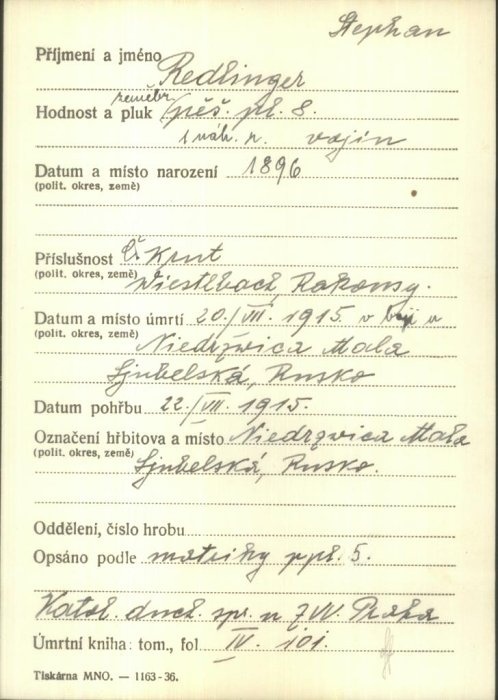 Stephan
Příjmení a jméno Redlinger
Hodnost a pluk zeměbr. pěš. pl. 8.
1 náh. r. vojín
Datum a místo narození 1896
(polit. okres, země)
Příslušnost
(polit. okres, země) Rakousy.
Datum a místo úmrtí 20./VII. 1915. v boji u
(polit. okres, země) Niedrzwica Mala
Ljubelská, Rusko
Datum pohřbu 22./VII. 1915.
Označení hřbitova a místo Niedrzwica Mala
(polit. okres, země) Ljubelská, Rusko.
Oddělení, číslo hrobu
Opsáno podle matriky ppl. 5.
Katol. duch. spr. u ZVV. Praha
Úmrtní kniha: tom., fol. IV. 101.
Tiskárna MNO. — 1163-36.